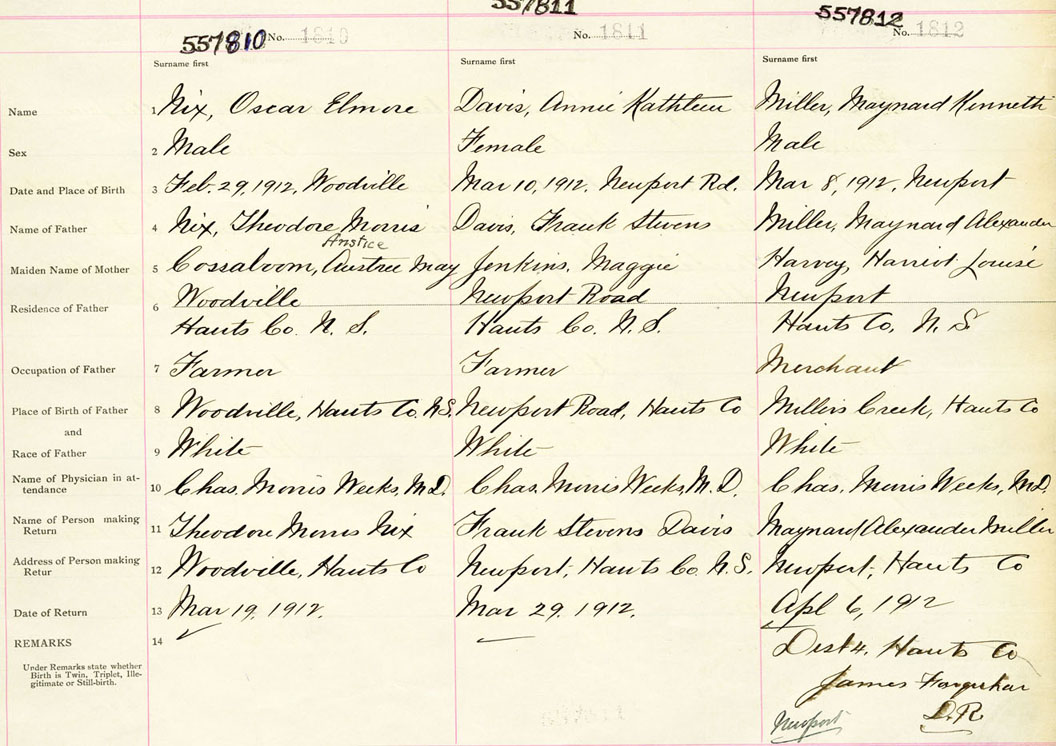 557811
557812
557810 No. 1810 No. 1811 No. 1812
Surname first Surname first Surname first
Name 1 Nix, Oscar Elmore Davis, Annie Kathleen Miller, Maynard Kenneth
Sex 2 Male Female Male
Date and Place of Birth 3 Feb. 29, 1912, Woodville Mar 10, 1912, Newport Rd. Mar 8, 1912, Newport
Name of Father 4 Nix, Theodore Morris Davis, Frank Stevens Miller, Maynard Alexander
Anstice
Maiden Name of Mother 5 Cossaboom, Austree May Jenkins, Maggie Harvey, Harriot Louise
Residence of Father 6 Woodville Newport Road Newport
Hants Co. N. S. Hants Co. N. S. Hants Co, N. S
Occupation of Father 7 Farmer Farmer Merchant
Place of Birth of Father 8 Woodville, Hants Co. N.S. Newport Road, Hants Co Millers Creek, Hants Co
and
Race of Father 9 White White White
Name of Physician in at-
tendance 10 Chas. Morris Weeks, M.D. Chas. Morris Weeks, M.D. Chas, Morris Weeks, M.D.
Name of Person making
Return 11 Theodore Morris Nix Frank Stevens Davis Maynard Alexander Miller
Address of Person making
Retur 12 Woodville, Hants Co Newport, Hants Co. N.S. Newport, Hants Co
Date of Return 13 Mar 19, 1912. Mar 29, 1912. Apl 6, 1912
REMARKS 14 Dist 4. Hants Co
Under Remarks state whether
Birth is Twin, Triplet, Ille-
gitimate or Still-birth.
James Farquhar
Newport D.R